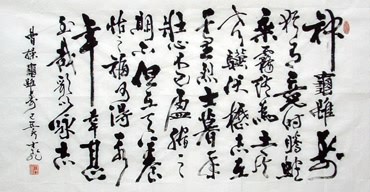 神龜雖壽
猶有竟時騰蛇
乘霧終為土灰
老驥伏櫪志在
千里烈士暮年
壯心不已盈縮之
期不但在天養
怡之福可得永
年幸甚
至哉歌以詠志
曹操龜雖壽